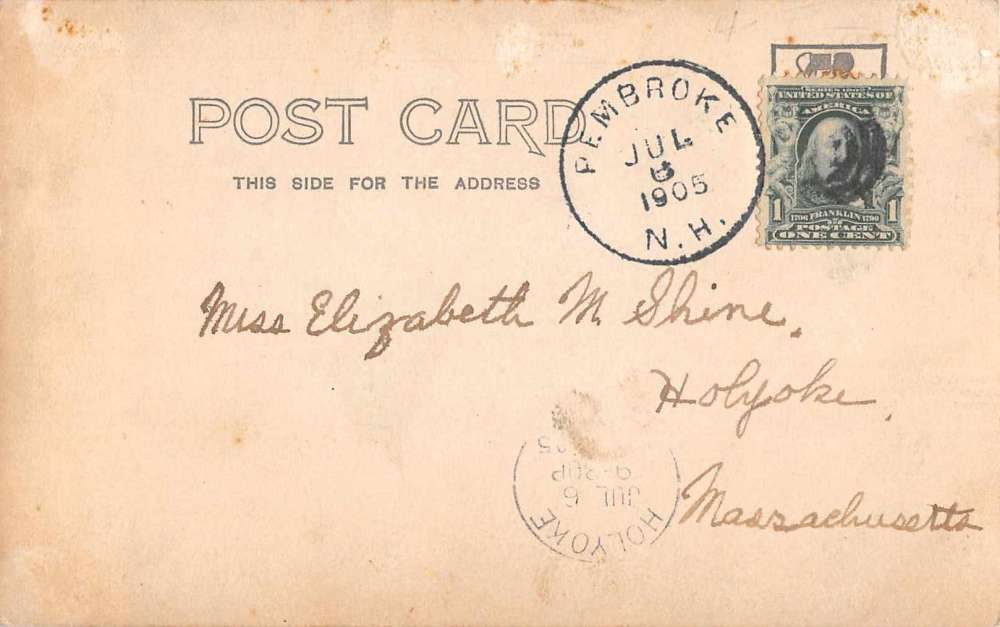 POST CARD
THIS SIDE FOR THE ADDRESS
PEMBROKE
JUL
6
1905
N.H.
SERIES 1902
UNITED STATES OF
AMERICA
1 1706 FRANKLIN 1790 1
POSTAGE
ONE CENT
Miss Elizabeth M. Shine,
Holyoke,
Massachusetts
HOLYOKE
JUL 6